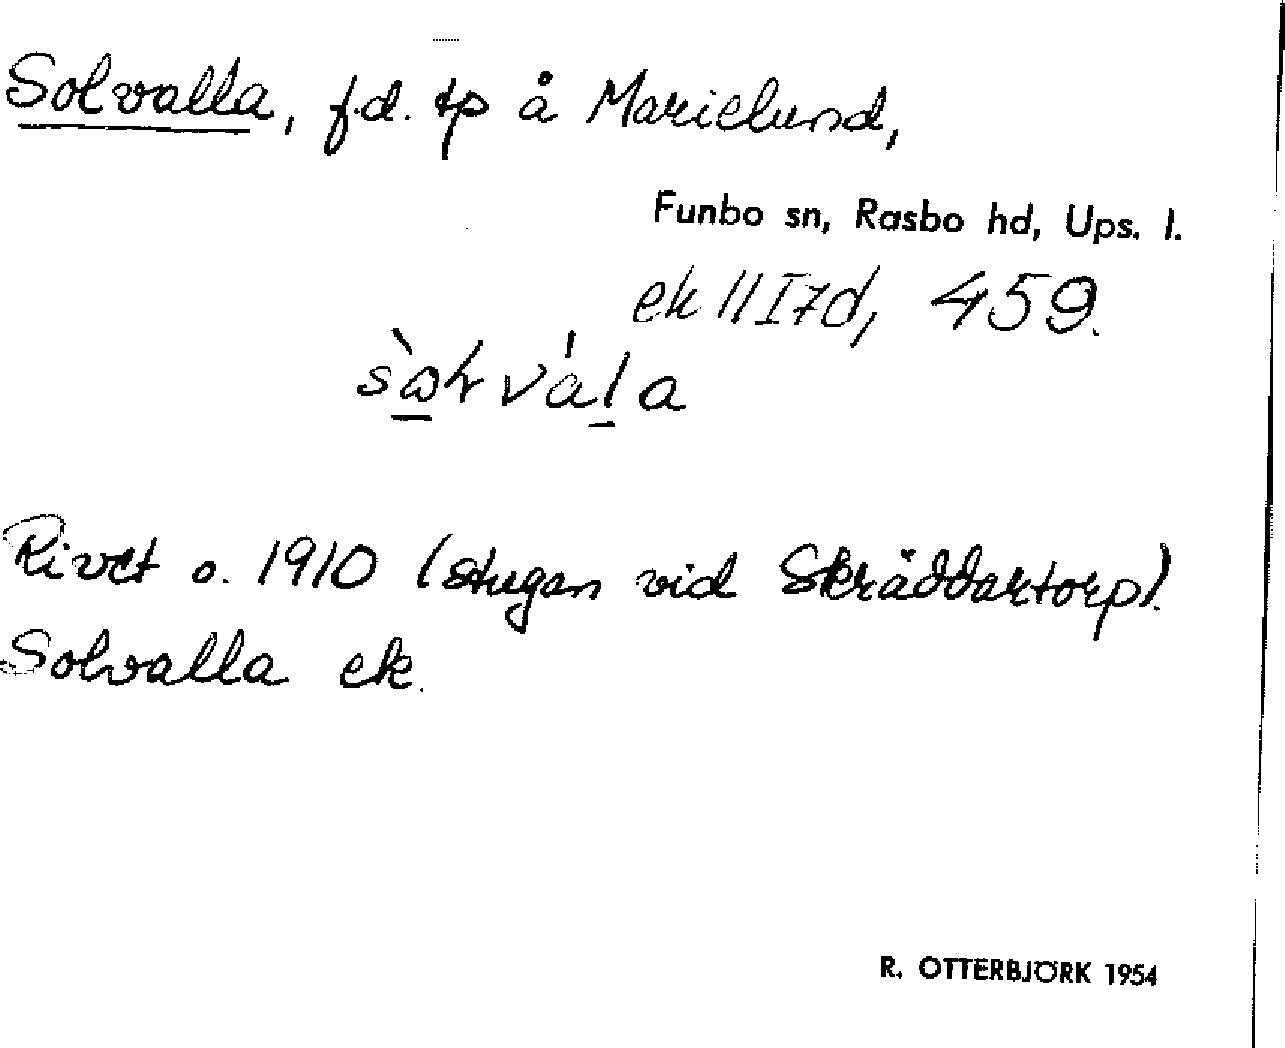 Solvalla, f.d. tp å Marielund,
Funbo sn, Rasbo hd, Ups. l.
ek 11I7d, 459.
Rivet o. 1910 (stugan vid Skräddartorp).
Solvalla ek.
R. OTTERBJÖRK 1954